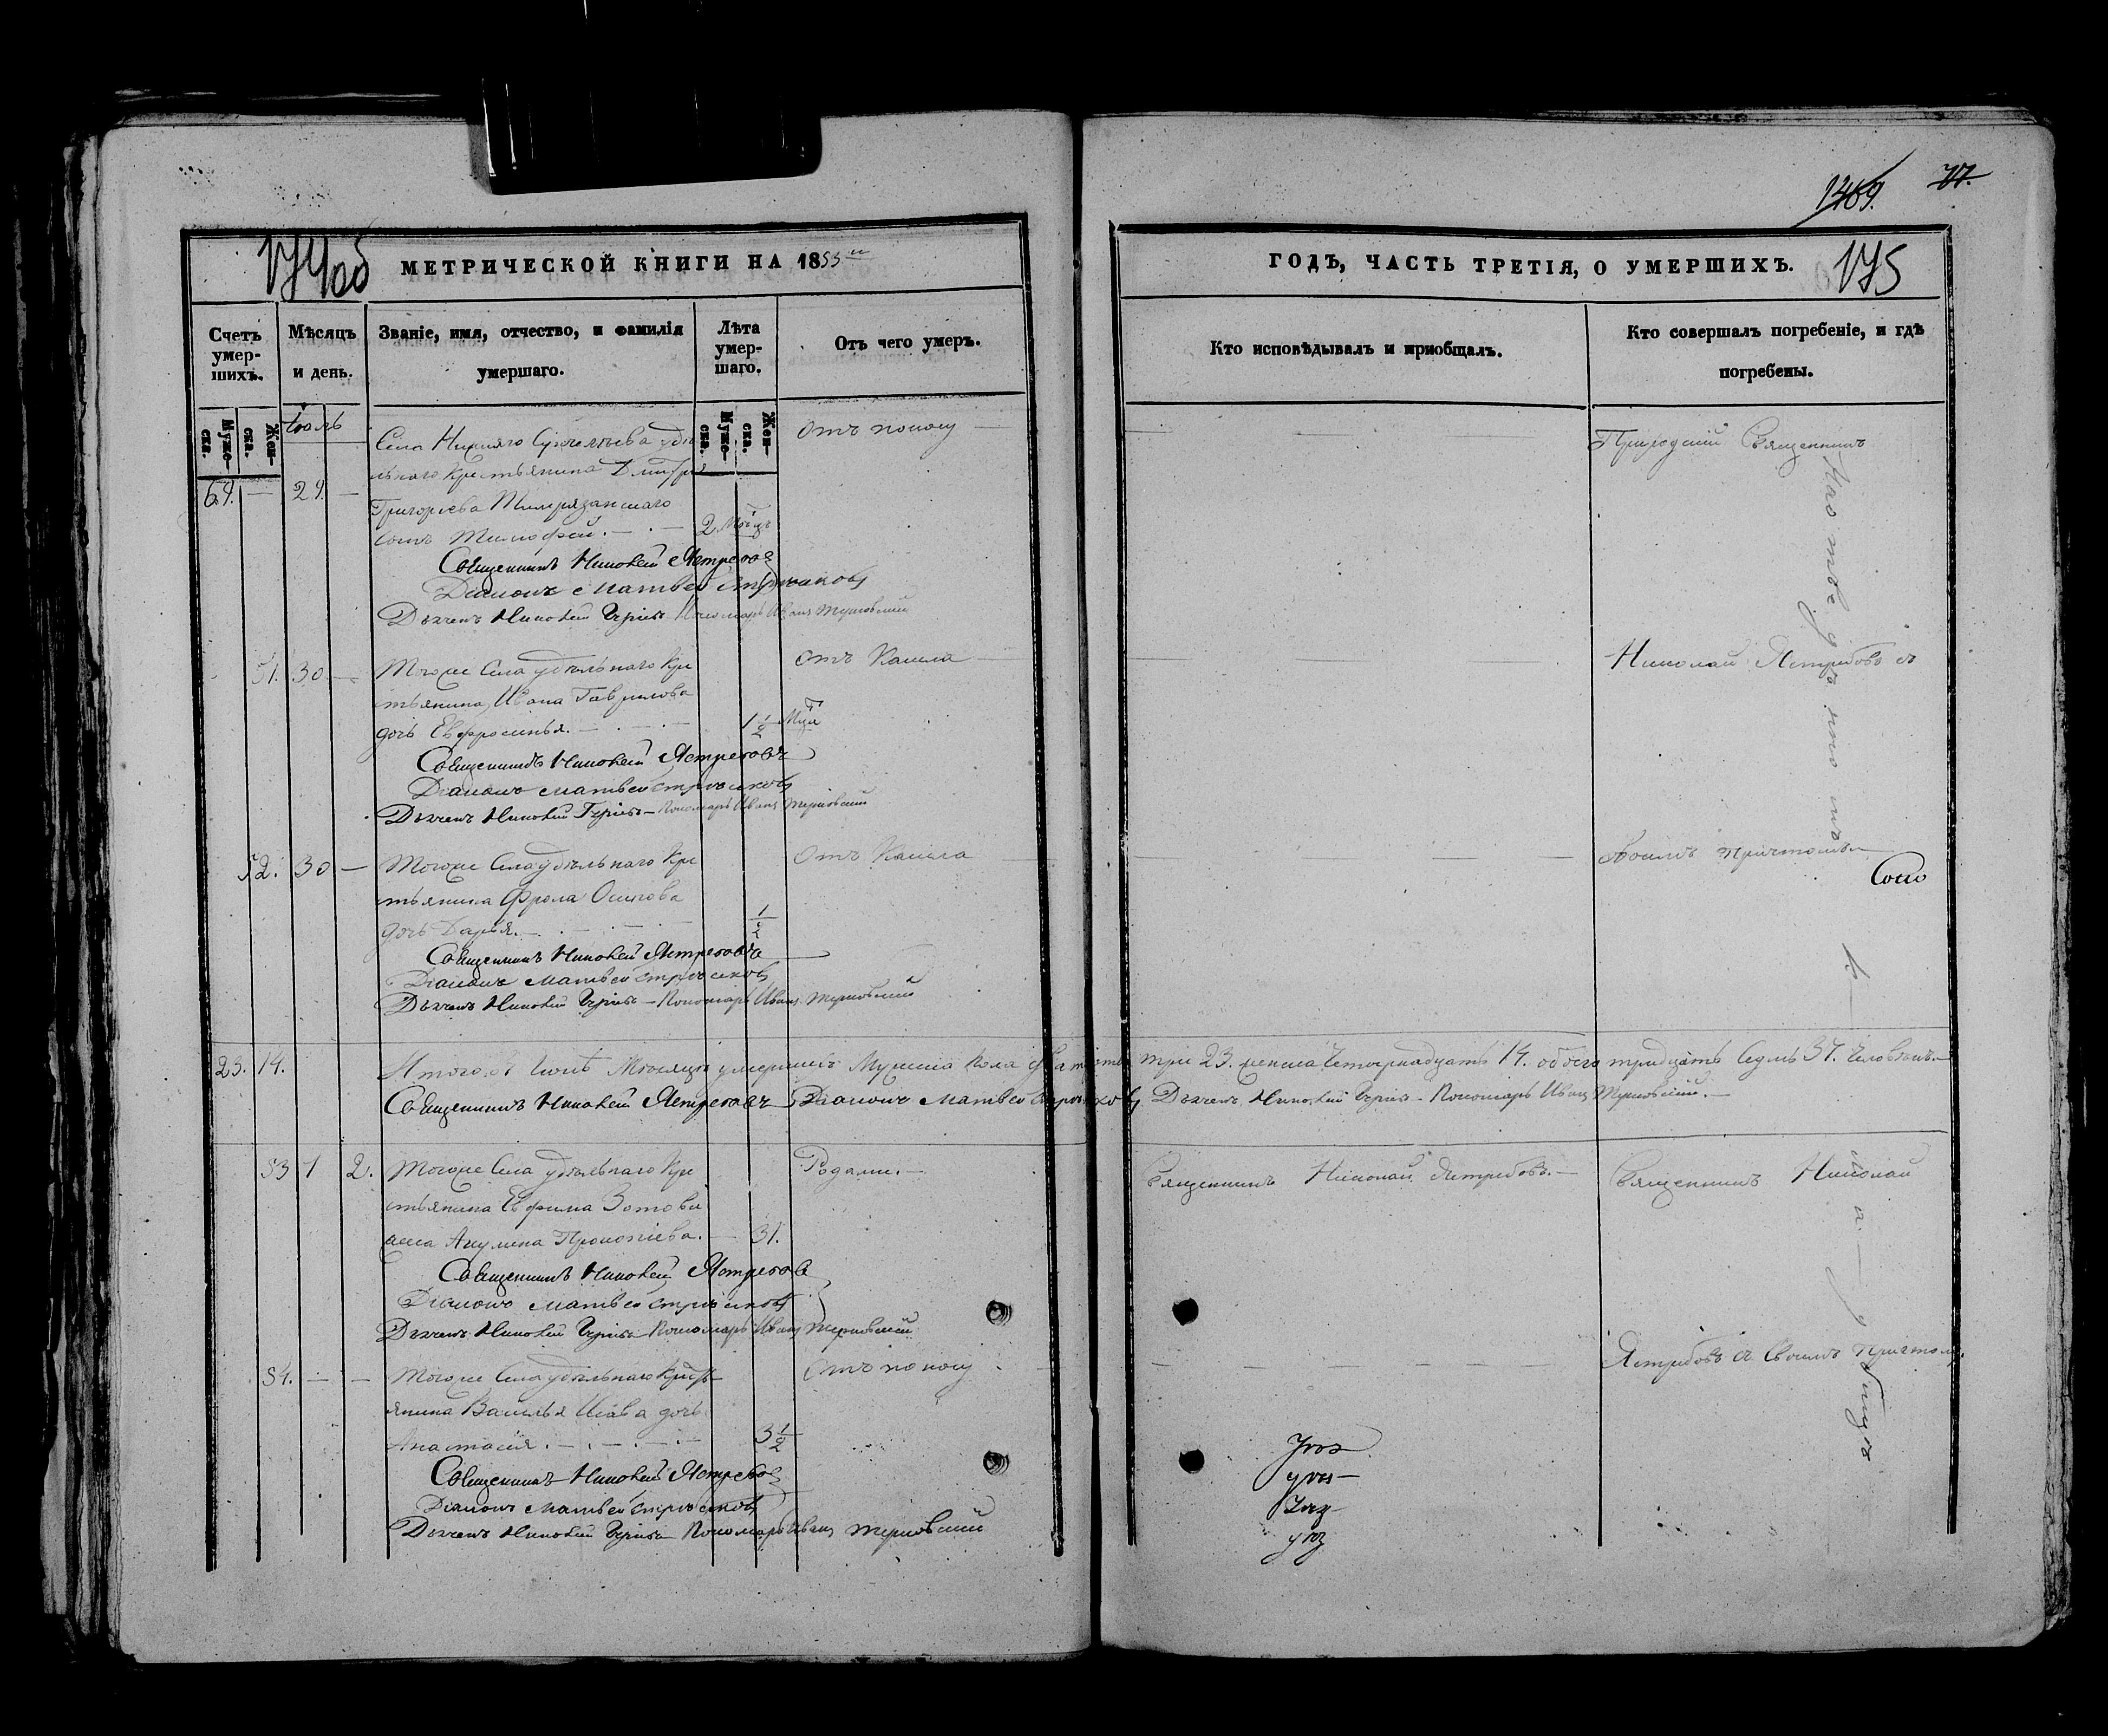 174 об
МЕТРИЧЕСКОЙ КНИГИ НА 1855
Счетъ умер-шихъ.
Мѣсяцъ и день.
Званіе, имя, отчество, и фамилія умершаго.
Лѣта умер-шаго.
Отъ чего умеръ.
Муже-ска.
Жен-ска.
Муже-ска.
Жен-ска.
Іюль
64. — 29. —
Села Нижняго удѣ
льнаго Крестьянина Дмитрія
Григорьева
сынъ Тимофей.
2. Мѣсц
Отъ поносу
Священникъ Николай Ястребовъ
Діаконъ Матвей
Дьячекъ Николай Пономарь Иванъ Терновскій
51. 30 —
Тогоже Села удѣльнаго Кре
стьянина Ивана Гаврилова
дочь Евфросинья.
1 1/2
Отъ Кашля
Священникъ Николай Ястребовъ
Діаконъ Матвей
Дьячекъ Николай Пономарь Иванъ Терновскій
52. 30 —
Тогоже Села удѣльнаго Кре
стьянина Фрола Осипова
дочь Дарья.
1/2
Отъ Кашля
Священникъ Николай Ястребовъ
Діаконъ Матвей
Дьячекъ Николай Пономарь Иванъ Терновскій
23. 14.
Итого въ Іюлѣ Мѣсяцѣ умершихъ Мужеска пола двадцать три 23. женска Четырнадцать 14. обоего тридцать Седмь 37. Человѣкъ.—
Священникъ Николай Ястребовъ Діаконъ Матвей Дьячекъ Николай Пономарь Иванъ Терновскій.—
53 1 2.
Тогоже Села удѣльнаго Кре
стьянина Ефима Зотова
жена Акулина Прокопіева.
31.
Родами.—
Священникъ Николай Ястребовъ
Діаконъ Матвей
Дьячекъ Николай Пономарь Иванъ Терновскій
54. — —
Тогоже Села удѣльнаго Крест
янина Василья Исаева дочь
Анастасія.
3 1/2
Отъ поносу
Священникъ Николай Ястребовъ
Діаконъ Матвей
Дьячекъ Николай Пономарь Иванъ Терновскій
1469. 77.
ГОДЪ, ЧАСТЬ ТРЕТІЯ, О УМЕРШИХЪ.
175
Кто исповѣдывалъ и пріобщалъ.
Кто совершалъ погребеніе, и гдѣ погребены.
Приходскій Священникъ
Николай Ястребовъ съ
своимъ причтомъ
Священникъ Николай Ястребовъ.—
Священникъ Николай
Ястребовъ съ Своимъ причтом.
На отве денно мъ
к ла д бищѣ